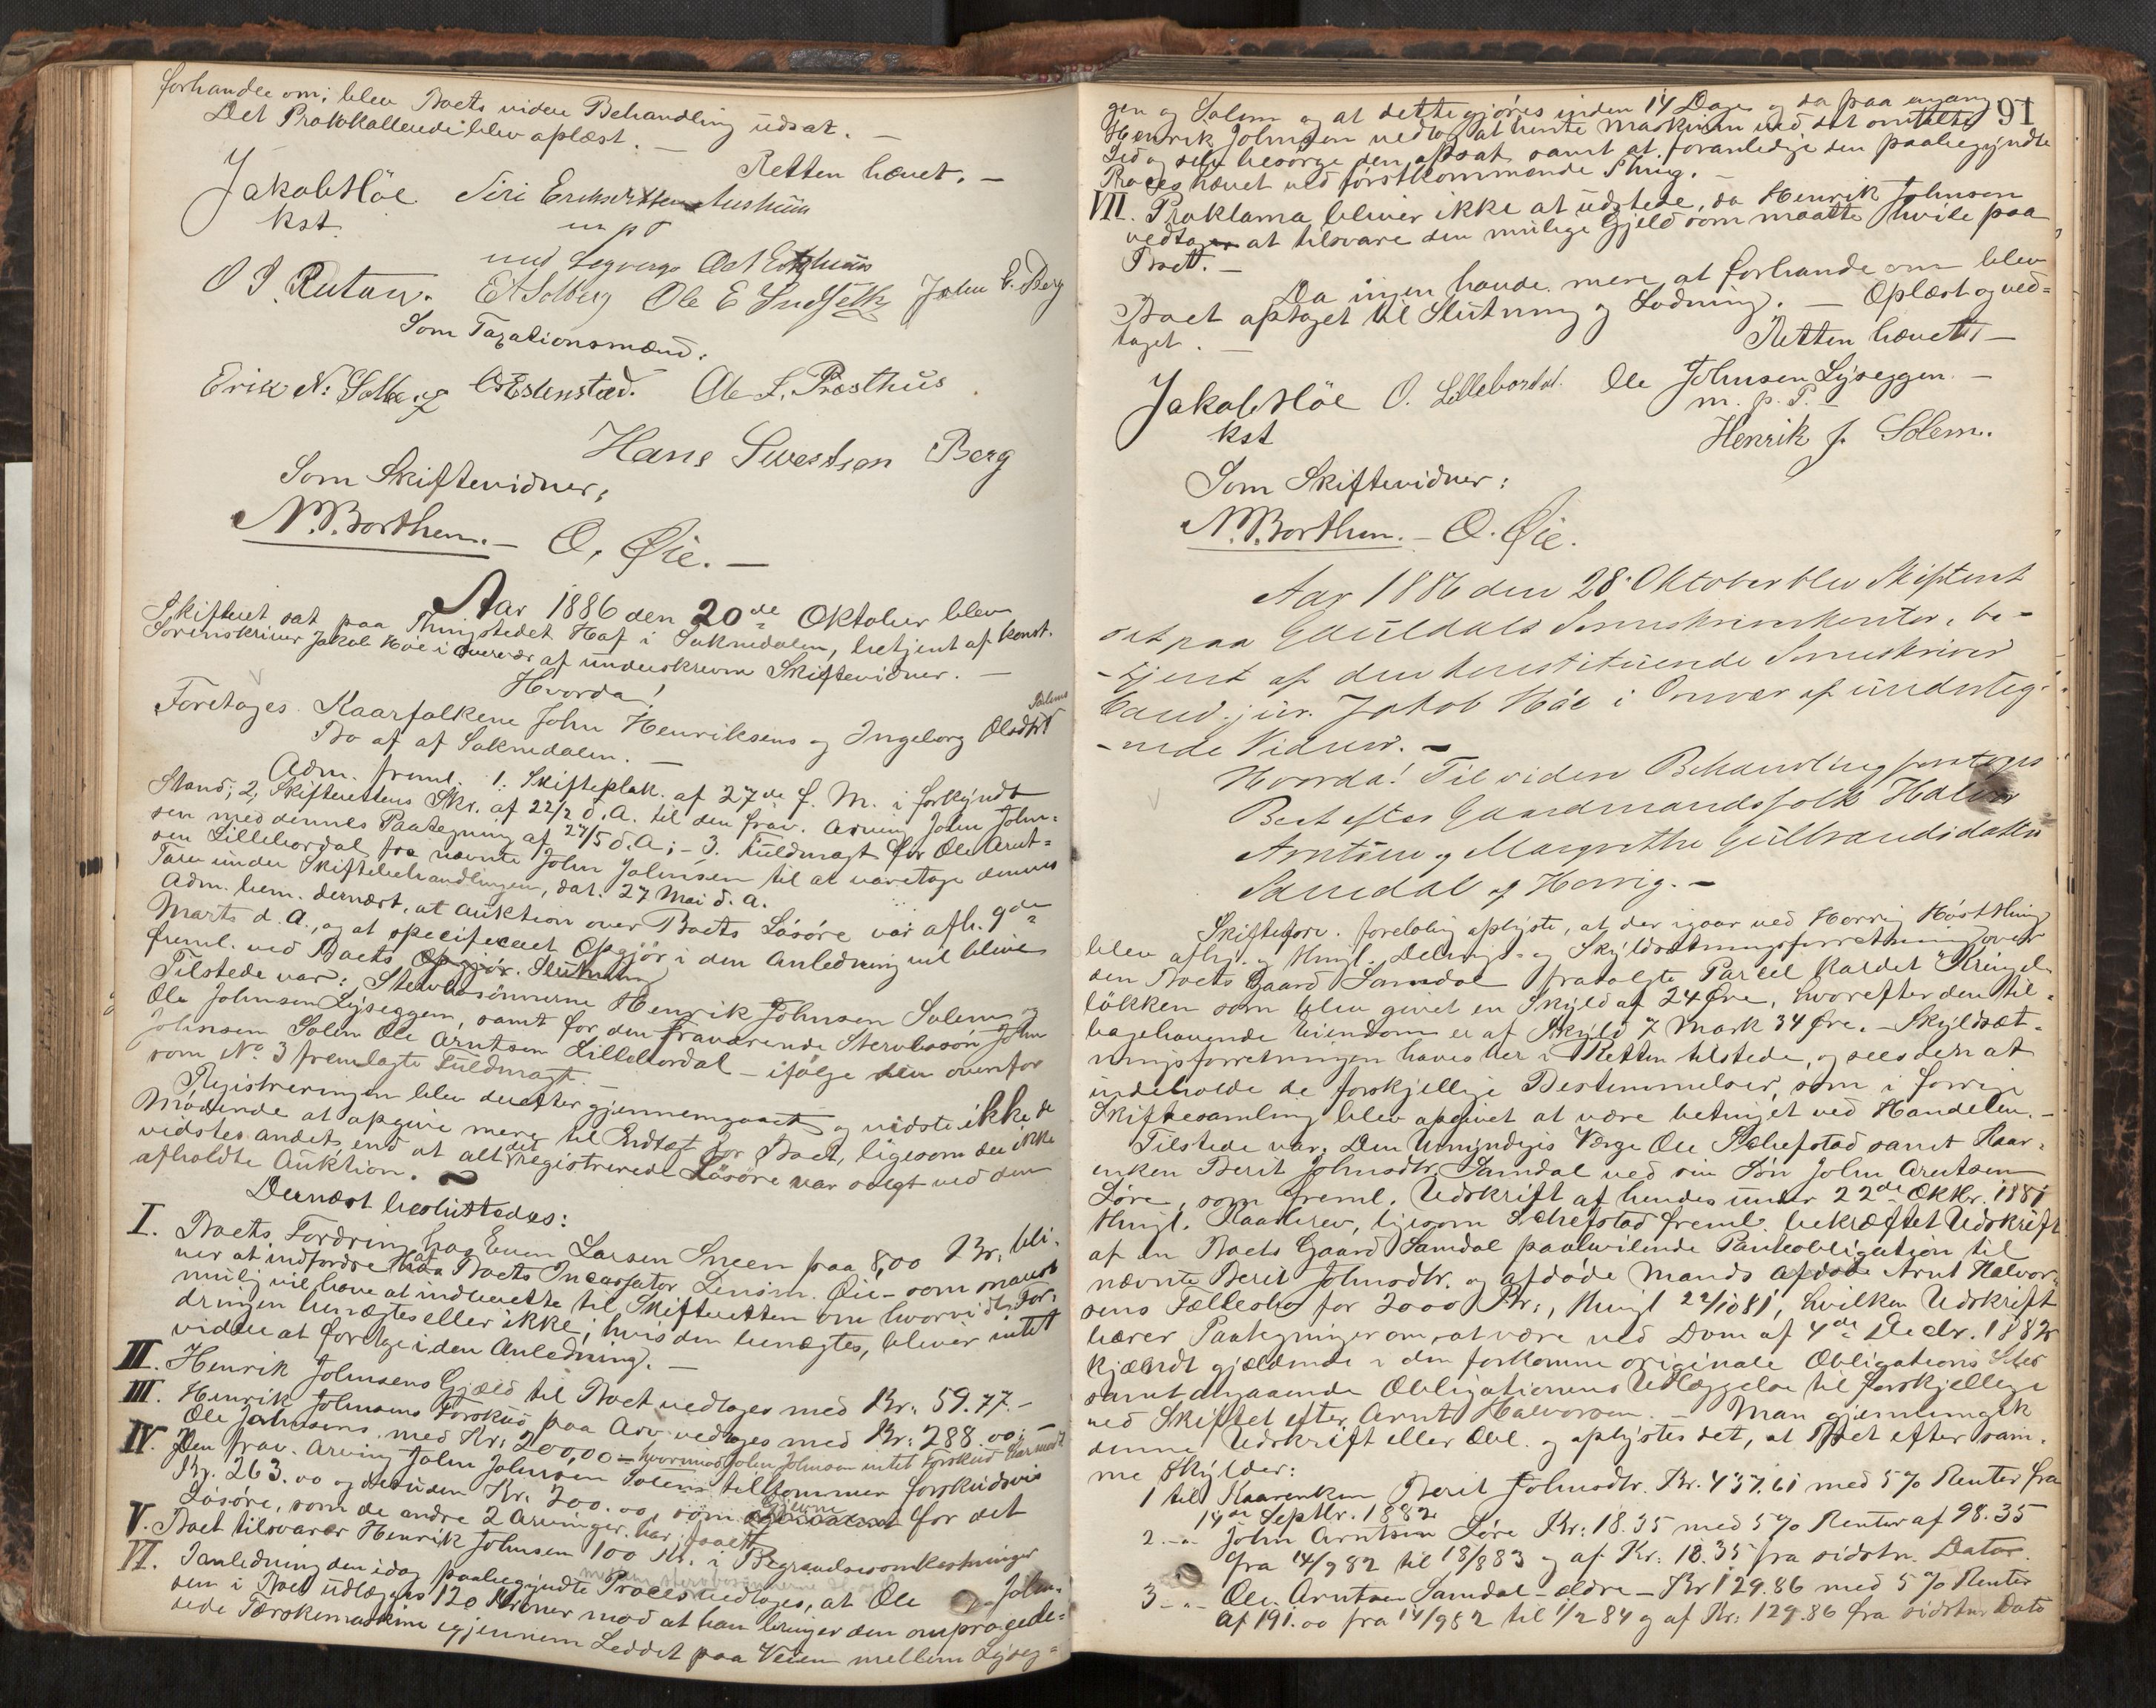 forhandle om; blev Boets videre Behandling udsat. —
Det Protokollerede blev oplæst. —
Retten hævet. —
Jakob Höe Siri Eriksdatter Aushuus
kst. m p P
med Lagverge
O J Rutau. E A Solberg Ole E Indseth John E. Berg
Som Taxationsmænd:
Erik N: Solberg O Estenstad. Ole L. Præsthus
Hans Sivertsen Berg
Som Skiftevidner:
N. Borthen. — O. Øie. —
Aar 1886 den 20de Oktober blev
Skifteret sat paa Thingstedet Hof i Soknedalen, betjent af konst.
Sorenskriver Jakob Höe i Overvær af underskrevne Skiftevidner. —
Hvorda!
Foretoges Kaarfolkene John Henriksens og Ingeborg Olsdtr Solems
Bo af af Soknedalen. —
Adm. freml. 1: Skifteplak. af 27de f. M. i forkyndt
Stand; 2, Skifterettens Skr. af 22/2 d. A. til den frav. Arving John John=
sen med dennes Paategning af 27/5 d. A; — 3. Fuldmagt for Ole Arnt=
sen Lillebordal fra nævnte John Johnsen til at varetage dennes
Tarv under Skiftebehandlingen, dat. 27 Mai d. A.
Adm. bem. dernæst, at Auktion over Boets Lösöre var afh. 9de
Marts d. A., og at specificeret Opgjör i den Anledning vil blive
freml. ved Boets Opgjör. Slutning
Tilstede var: Stervbosönnerne Henrik Johnsen Solem og
Ole Johnsen Lyseggen, samt for den fraværende Stervbosön John
Johnsen Solem Ole Arntsen Lillebordal — ifölge den ovenfor
som No 3 fremlagte Fuldmagt. —
Registreringen blev derefter gjennemgaaet og vidste ikke de
Mödende at opgive mere til Indtægt for Boet, ligesom der ikke
vidstes andet, end at alt det registrerede Lösöre var solgt ved den
afholdte Auktion.
Dernæst besluttedes:
I. Boets Fordring hos Even Larsen Sneen paa 8,00 Kr. bli=
ver at indfordre af Boets Incassator Lensm. Øie — som snarest
mulig vil have at indberette til Skifteretten om hvorvidt For=
dringen benægtes eller ikke; hvis den benægtes, bliver intet
videre at foretage i den Anledning. —
II. Henrik Johnsens Gjæld til Boet vedtages med Kr. 59.77. —
III. Henrik Johnsens Forskud paa Arv vedtages med Kr: 288.00; —
Ole Johnsens med Kr: 200,00 — hvorimod John Johnsen intet Forskud har modt.
IV. Den frav. Arving John Johnsen Solem tilkommer forskudsvis
Kr. 263.00 og desuden Kr. 200.00, som for det
Lösöre, som de andre 2 Arvinger har faaet
V. Boet tilsvarer Henrik Johnsen 100 Kr. i Begravelsesomkostninger
VI. I Anledning den idag paabegyndte Proces vedtages, at Ole John=
sen i Boet udlægges 120 Kroner mod at han bringer den omprocede=
rede Tærskemaskine igjennem Leddet paa Veien mellem Lyseg=
91
gen og Solem og at dette gjöres inden 14 Dage og da paa engang
Henrik Johnsen vedtog at hente Maskinen ved det omtalte
Led og selv besörge den afsat samt at foranledige den paabegyndte
Proces hævet ved förstkommende Thing. —
VII. Proklama bliver ikke at udstede, da Henrik Johnsen
vedtager at tilsvare den mulige Gjeld som maatte hvile paa
Boet. —
Da ingen havde mere at forhandle om blev
Boet optaget til Slutning og Lodning. — Oplæst og ved=
taget. — Retten hævet. —
Jakob Höe O. Lillebordal. Ole Johnsen Lyseggen. —
kst m. p. P. —
Henrik J. Solem.
Som Skiftevidner:
N. Borthen. — O. Øie.
Aar 1886 den 28. Oktober blev Skifteret
sat paa Gauldals Sorenskriverkontor, be-
-tjent af den konstituerede Sorenskriver
Cand. jur. Jakob Höe i Overvær af underteg-
-nede Vidner. —
Hvorda! Til videre Behandling foretoges
Boet efter Gaardmandsfolk Halvor
Arntsen og Margrethe Gulbrandsdatter
Samdal af Horrig. —
Skifteforv. foreløbig oplyste, at der igaar ved Horrig Hösthing
blev afhj. og thingl. Delings- og Skyldsætningsforretning over
den Boets Gaard Samdal frasolgte Parcel kaldet "Kringel
lökken som blev givet en Skyld af 24 Øre, hvorefter den til=
bagehavende Eiendom er af Skyld 7 Mark 34 Øre. — Skyldsæt=
ningsforretningen haves her i Retten tilstede, og sees den at
indeholde de forskjellige Bestemmelser, som i forrige
Skiftesamling blev opgivet at være betinget ved Handelen. —
Tilstede var: Den Umyndiges Verge Ole Schefstad samt Kaar=
enken Berit Johnsdtr. Samdal ved sin Sön John Arntsen
Löre, som freml. Udskrift af hendes under 22de Oktbr. 1881
thingl. Kaarbrev, ligesom Schefstad freml. bekræftet Udskrift
af en Boets Gaard Samdal paahvilende Panteobligation til
nævnte Berit Johnsdtr. og afdöde Mands Afdöde Arnt Halvor=
sens Fællesbo for 2000 Kr:, thingl 22/10 81, hvilken Udskrift
bærer Paategninger om, at være ved Dom af 4de Decbr. 1882
kjændt gjældende i den forkomne originale Obligations Sted
samt angaaende Obligationens Udlæggelse til forskjellige
ved Skiftet efter Arnt Halvorsen. — Man gjennemgik
denne Udskrift eller Obl. og oplystes det, at Boet efter sam=
me skylder:
1 til Kaarenken Berit Johnsdtr. Kr. 437.61 med 5 % Renter fra
14de Septbr. 1882
2 -"- John Arntsen Löre Kr: 18.35 med 5 % Renter af 98.35
fra 14/9 82 til 18/8 83 og af Kr: 18.35 fra sidstn. Dato.
3 -"- Ole Arntsen Samdal — ældre — Kr 129.86 med 5 % Renter
af 191.00 fra 14/9 82 til 1/2 84 og af Kr: 129.86 fra sidstn. Dato